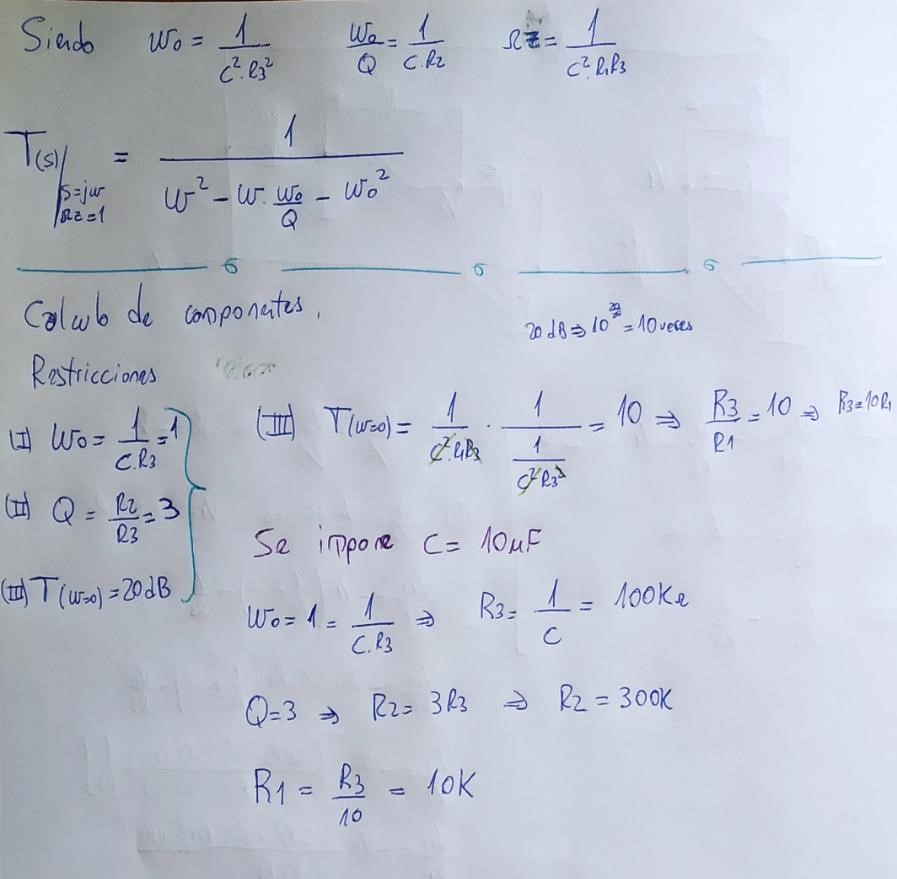 Siendo W₀ = 1/(C².R3²) W₀/Q = 1/(C.R2) Ωz = 1/(C².R1R3)
T(s)|s=jw Ωz=1 = 1/(W² - W.W₀/Q - W₀²)
Calculo de componentes.
20dB ⇒ 10^(20/20) = 10 veces
Restricciones
(I) W₀ = 1/(C.R3) = 1
(II) Q = R2/R3 = 3
(III) T(w=0) = 20dB
(III) T(w=0) = 1/(C².R1R3) . 1/(1/(C²R3²)) = 10 ⇒ R3/R1 = 10 ⇒ R3=10R1
Se impone C = 10µF
W₀ = 1 = 1/(C.R3) ⇒ R3 = 1/C = 100KΩ
Q=3 ⇒ R2 = 3R3 ⇒ R2 = 300K
R1 = R3/10 = 10K